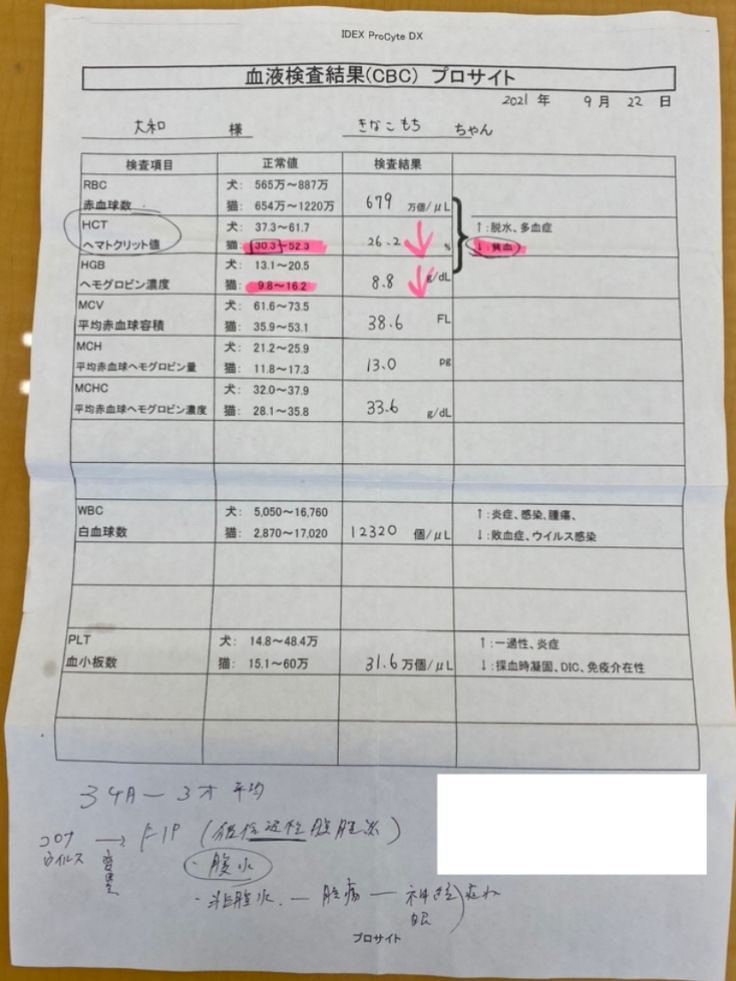 IDEX ProCyte DX
血液検査結果(CBC) プロサイト
2021 年 9 月 22 日
大和 様 きなこもち ちゃん
検査項目 正常値 検査結果
RBC 犬: 565万～887万
赤血球数 猫: 654万～1220万 679 万個/μL
HCT 犬: 37.3～61.7 ↑:脱水、多血症
ヘマトクリット値 猫: 30.3～52.3 26.2 ↓ % ↓:貧血
HGB 犬: 13.1～20.5
ヘモグロビン濃度 猫: 9.8～16.2 8.8 ↓ g/dL
MCV 犬: 61.6～73.5
平均赤血球容積 猫: 35.9～53.1 38.6 FL
MCH 犬: 21.2～25.9
平均赤血球ヘモグロビン量 猫: 11.8～17.3 13.0 pg
MCHC 犬: 32.0～37.9
平均赤血球ヘモグロビン濃度 猫: 28.1～35.8 33.6 g/dL
WBC 犬: 5,050～16,760 ↑:炎症、感染、腫瘍、
白血球数 猫: 2,870～17,020 12320 個/μL ↓:敗血症、ウイルス感染
PLT 犬: 14.8～48.4万 ↑:一過性、炎症
血小板数 猫: 15.1～60万 31.6 万個/μL ↓:採血時凝固、DIC、免疫介在性
3才 平均
コロナ → FIP (伝染性腹膜炎)
ウイルス 変異
・腹水
・非腹水 ー ー 神経
眼
プロサイト